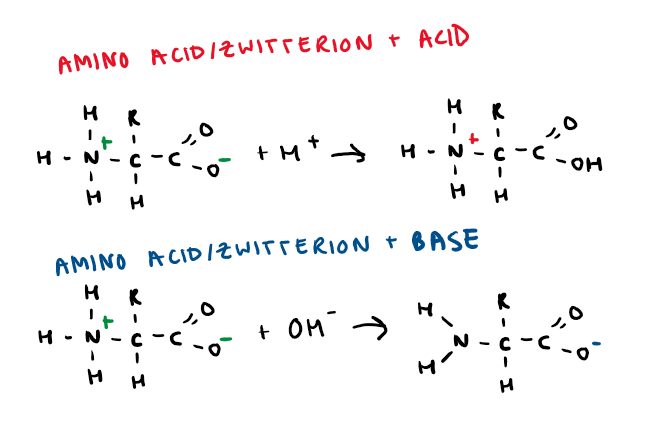 AMINO ACID/ZWITTERION + ACID
H R H R
+ O + O
H - N - C - C + H+ → H - N - C - C
O- OH
H H H H
AMINO ACID/ZWITTERION + BASE
H R R
+ O H O
H - N - C - C + OH- → N - C - C
O- H O-
H H H